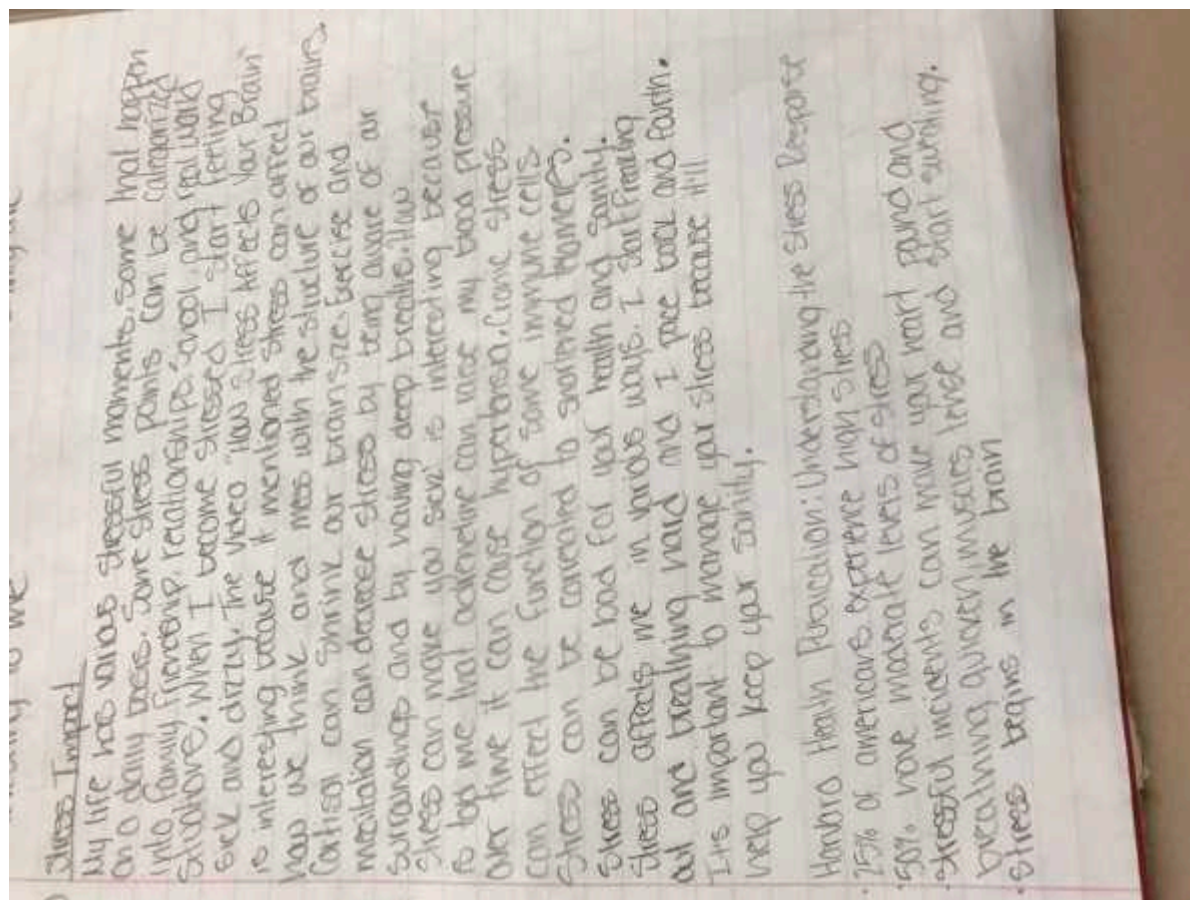 Stress Impact
My life has various stressful moments, some that happen
on a daily basis. Some stress points can be categorized
into family, friendship, relationships, school, and real world
situations. When I become stressed I start feeling
sick and dizzy. The video "How Stress Affects Your Brain"
is interesting because it mentioned stress can affect
how we think and mess with the structure of our brains.
Cortisol can shrink our brain size. Exercise and
meditation can decrease stress by being aware of our
surroundings and by having deep breaths. "How
stress can make you sick" is interesting because
to me that adrenaline can raise my blood pressure
over time it can cause hypertension. Cronic stress
can effect the function of some immune cells
Stress can be correlated to shortened
Stress can be bad for your health and sanity.
Stress affects me in various ways. I start freaking
out and breathing hard and I pace back and fourth.
It is important to manage your stress because it'll
help you keep your sanity.
Health Publication: Understanding the Stress Response
· 25% of americans experience high stress
· 50% have moderate levels of stress
· Stressful incidents can make your heart pound and
breathing quicken, muscles tense and start sweating.
· Stress begins in the brain